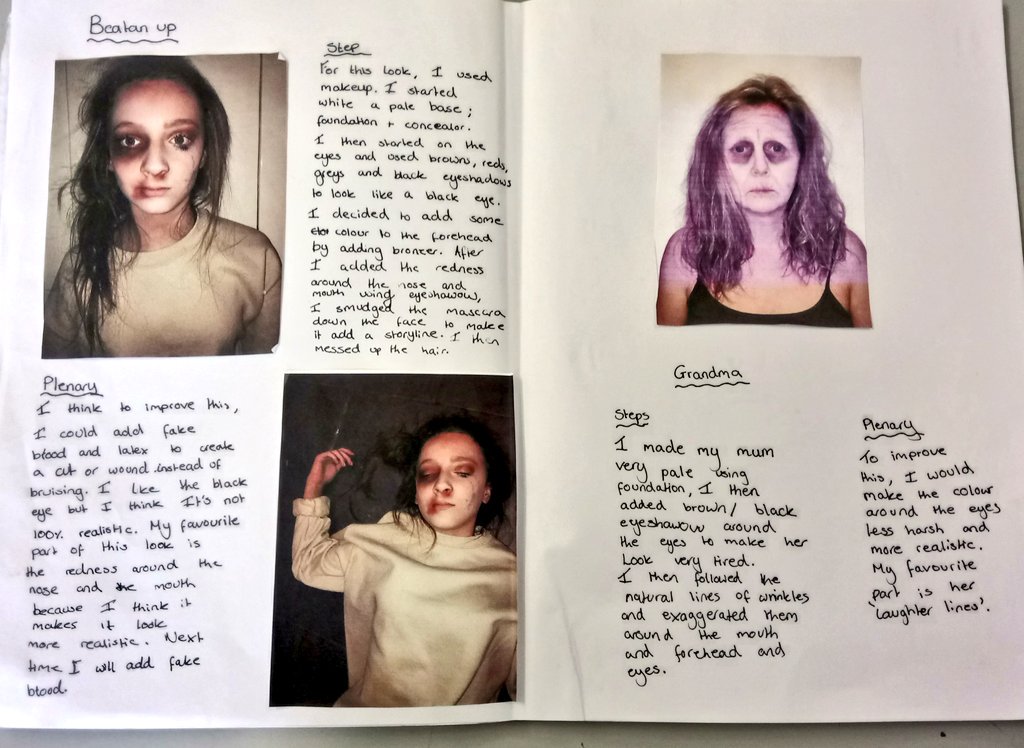 Beatan up
Step
For this look, I used
makeup. I started
white a pale base;
foundation + concealor.
I then started on the
eyes and used browns, reds,
greys and black eyeshadows
to look like a black eye.
I decided to add some
colour to the forehead
by adding bronzer. After
I added the redness
around the nose and
mouth using eyeshawow,
I smudged the mascara
down the face to make
it add a storyline. I then
messed up the hair.
Plenary
I think to improve this,
I could add fake
blood and latex to create
a cut or wound instead of
bruising. I like the black
eye but I think It's not
100% realistic. My favourite
part of this look is
the redness around the
nose and the mouth
because I think it
makes it look
more realistic. Next
time I will add fake
blood.
Grandma
Steps
I made my mum
very pale using
foundation, I then
added brown/black
eyeshawow around
the eyes to make her
look very tired.
I then followed the
natural lines of wrinkles
and exaggerated them
around the mouth
and forehead and
eyes.
Plenary
To improve
this, I would
make the colour
around the eyes
less harsh and
more realistic.
My favourite
part is her
'laughter lines'.